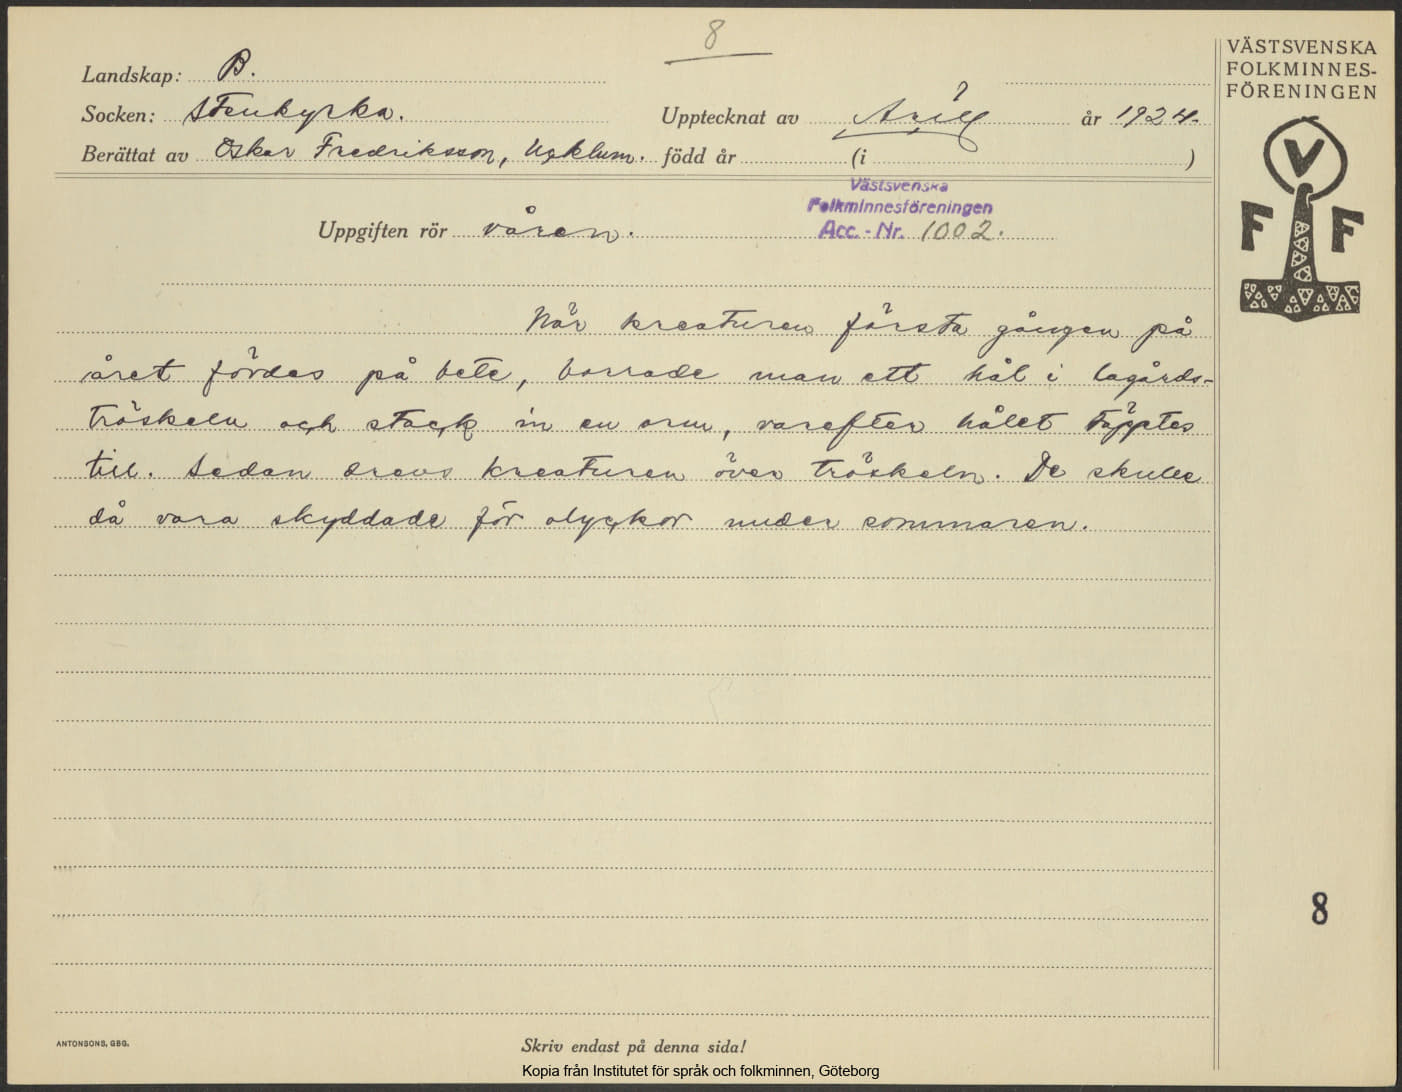 8
VÄSTSVENSKA
FOLKMINNES-
FÖRENINGEN
Landskap: B.
Socken: Stenkyrka.
Upptecknat av Arill år 1924.
Berättat av Oskar Fredriksson, Häklum. född år (i )
Västsvenska
Folkminnesföreningen
Acc.-Nr. 1002.
Uppgiften rör våren.
V
F F
När kreaturen första gången på
året fördes på bete, borrade man ett hål i lagårds-
tröskeln och stack in en orm, varefter hålet täpptes
till. Sedan drevs kreaturen över tröskeln. De skulle
då vara skyddade för olyckor under sommaren.
8
ANTONSONS, GBG.
Skriv endast på denna sida!
Kopia från Institutet för språk och folkminnen, Göteborg